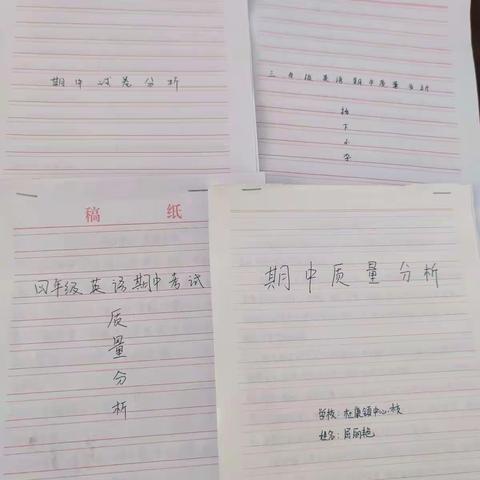 期中试卷分析
三年级英语期中质量分析
下
小
学
稿 纸
四年级英语期中考试
质
量
分
析
期中质量分析
学校:杜集镇中心校
姓名:屈丽艳